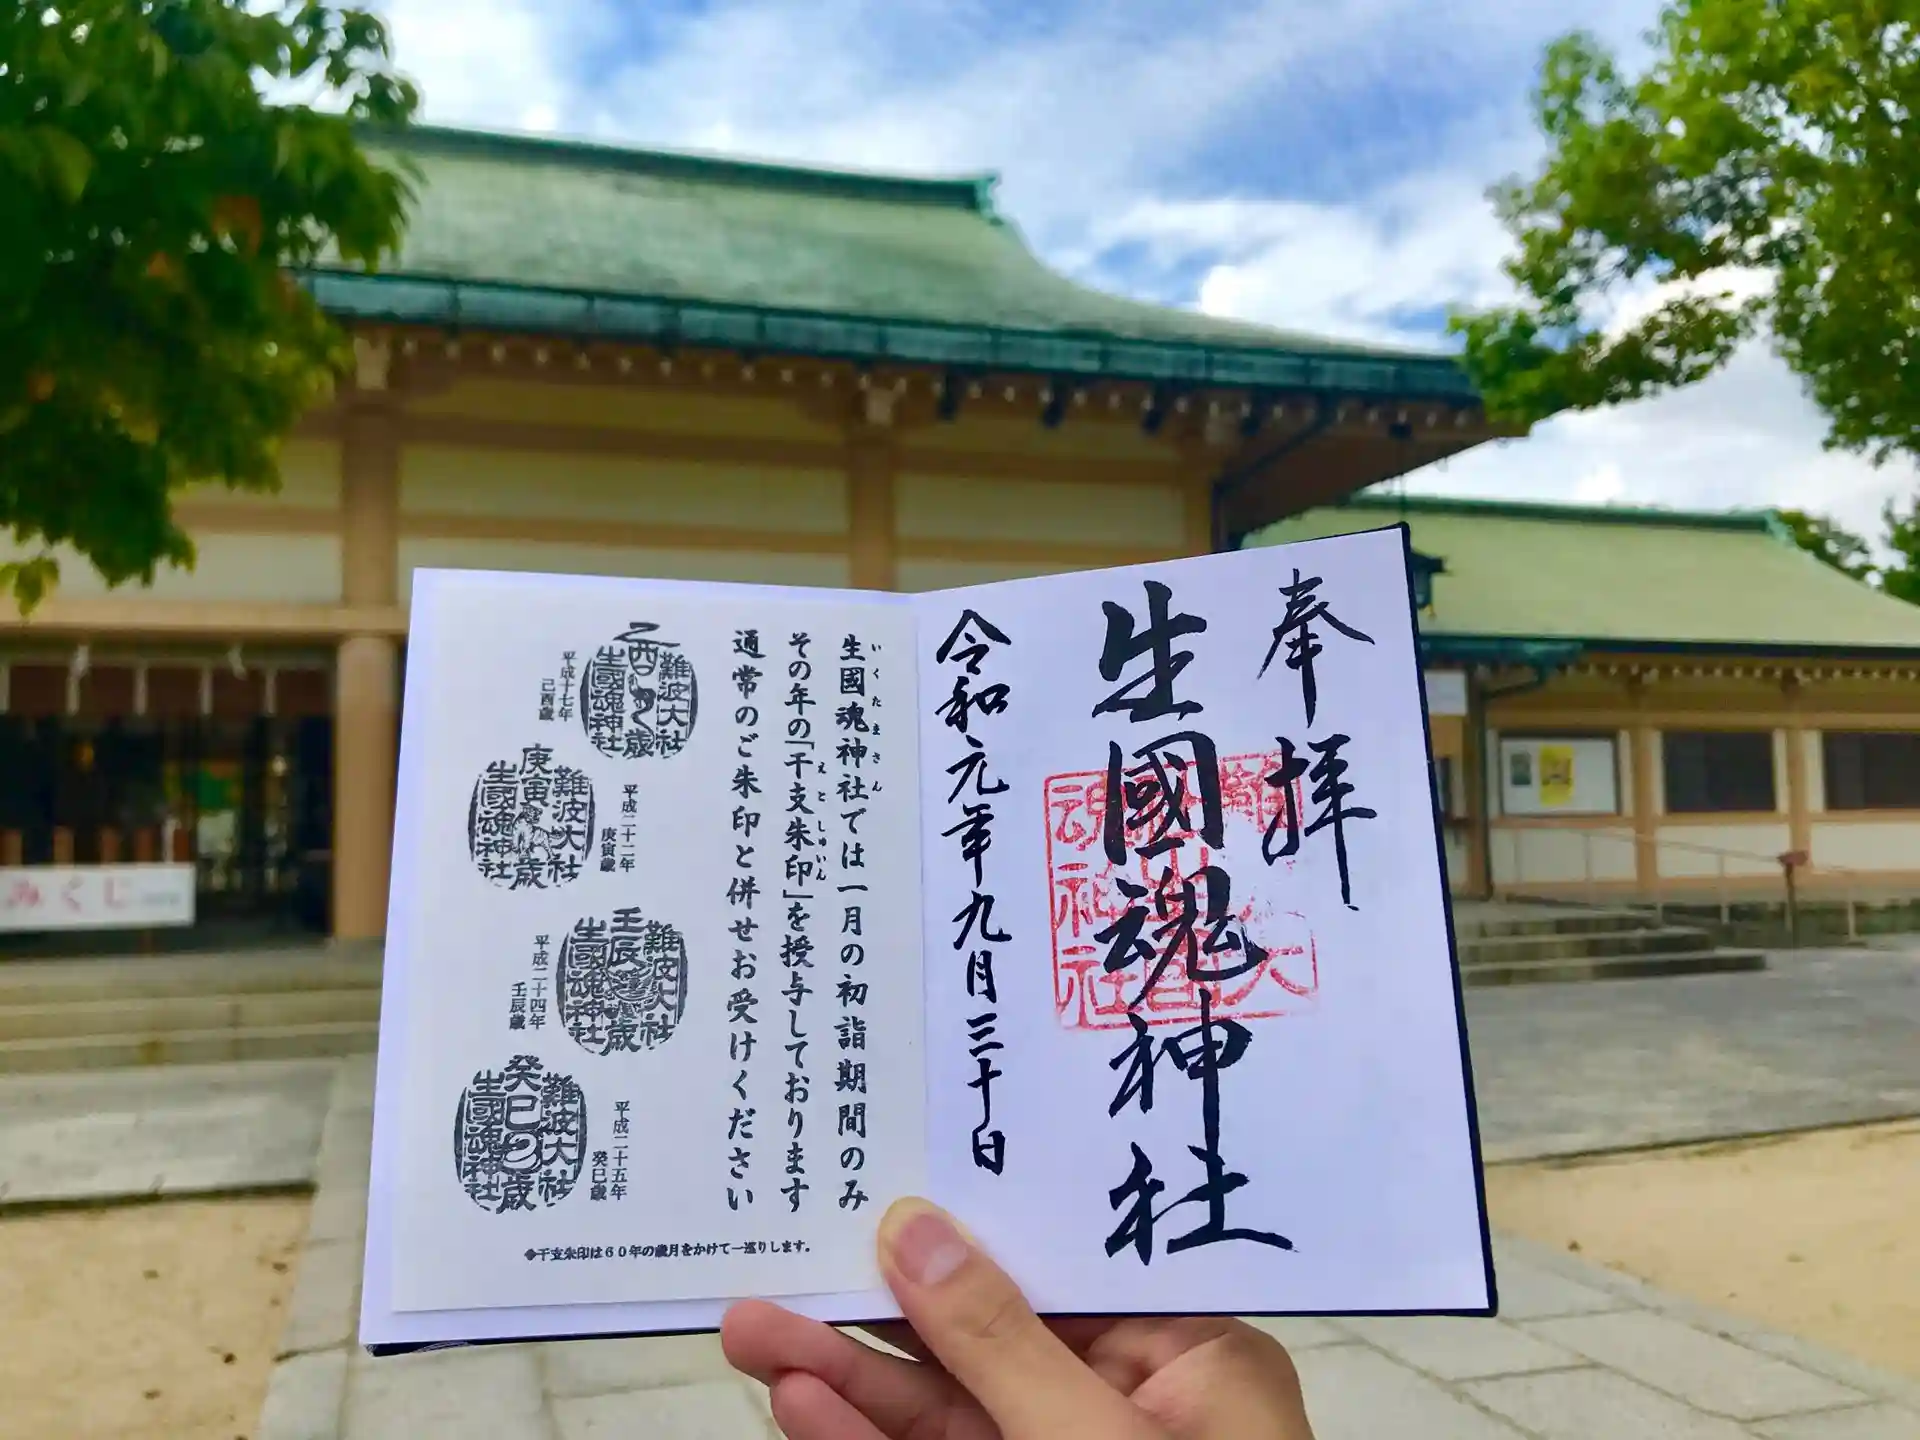 奉拝
生國魂神社
令和元年九月三十日
生國魂神社では一月の初詣期間のみ
いくたまさん
その年の「干支朱印」を授与しております
えとしゅいん
通常のご朱印と併せお受けください
難波大社
乙酉歳
生國魂神社
平成十七年
己酉歳
難波大社
庚寅歳
生國魂神社
平成二十二年
庚寅歳
難波大社
壬辰歳
生國魂神社
平成二十四年
壬辰歳
難波大社
癸巳歳
生國魂神社
平成二十五年
癸巳歳
◆干支朱印は60年の歳月をかけて一巡りします。
みくじ